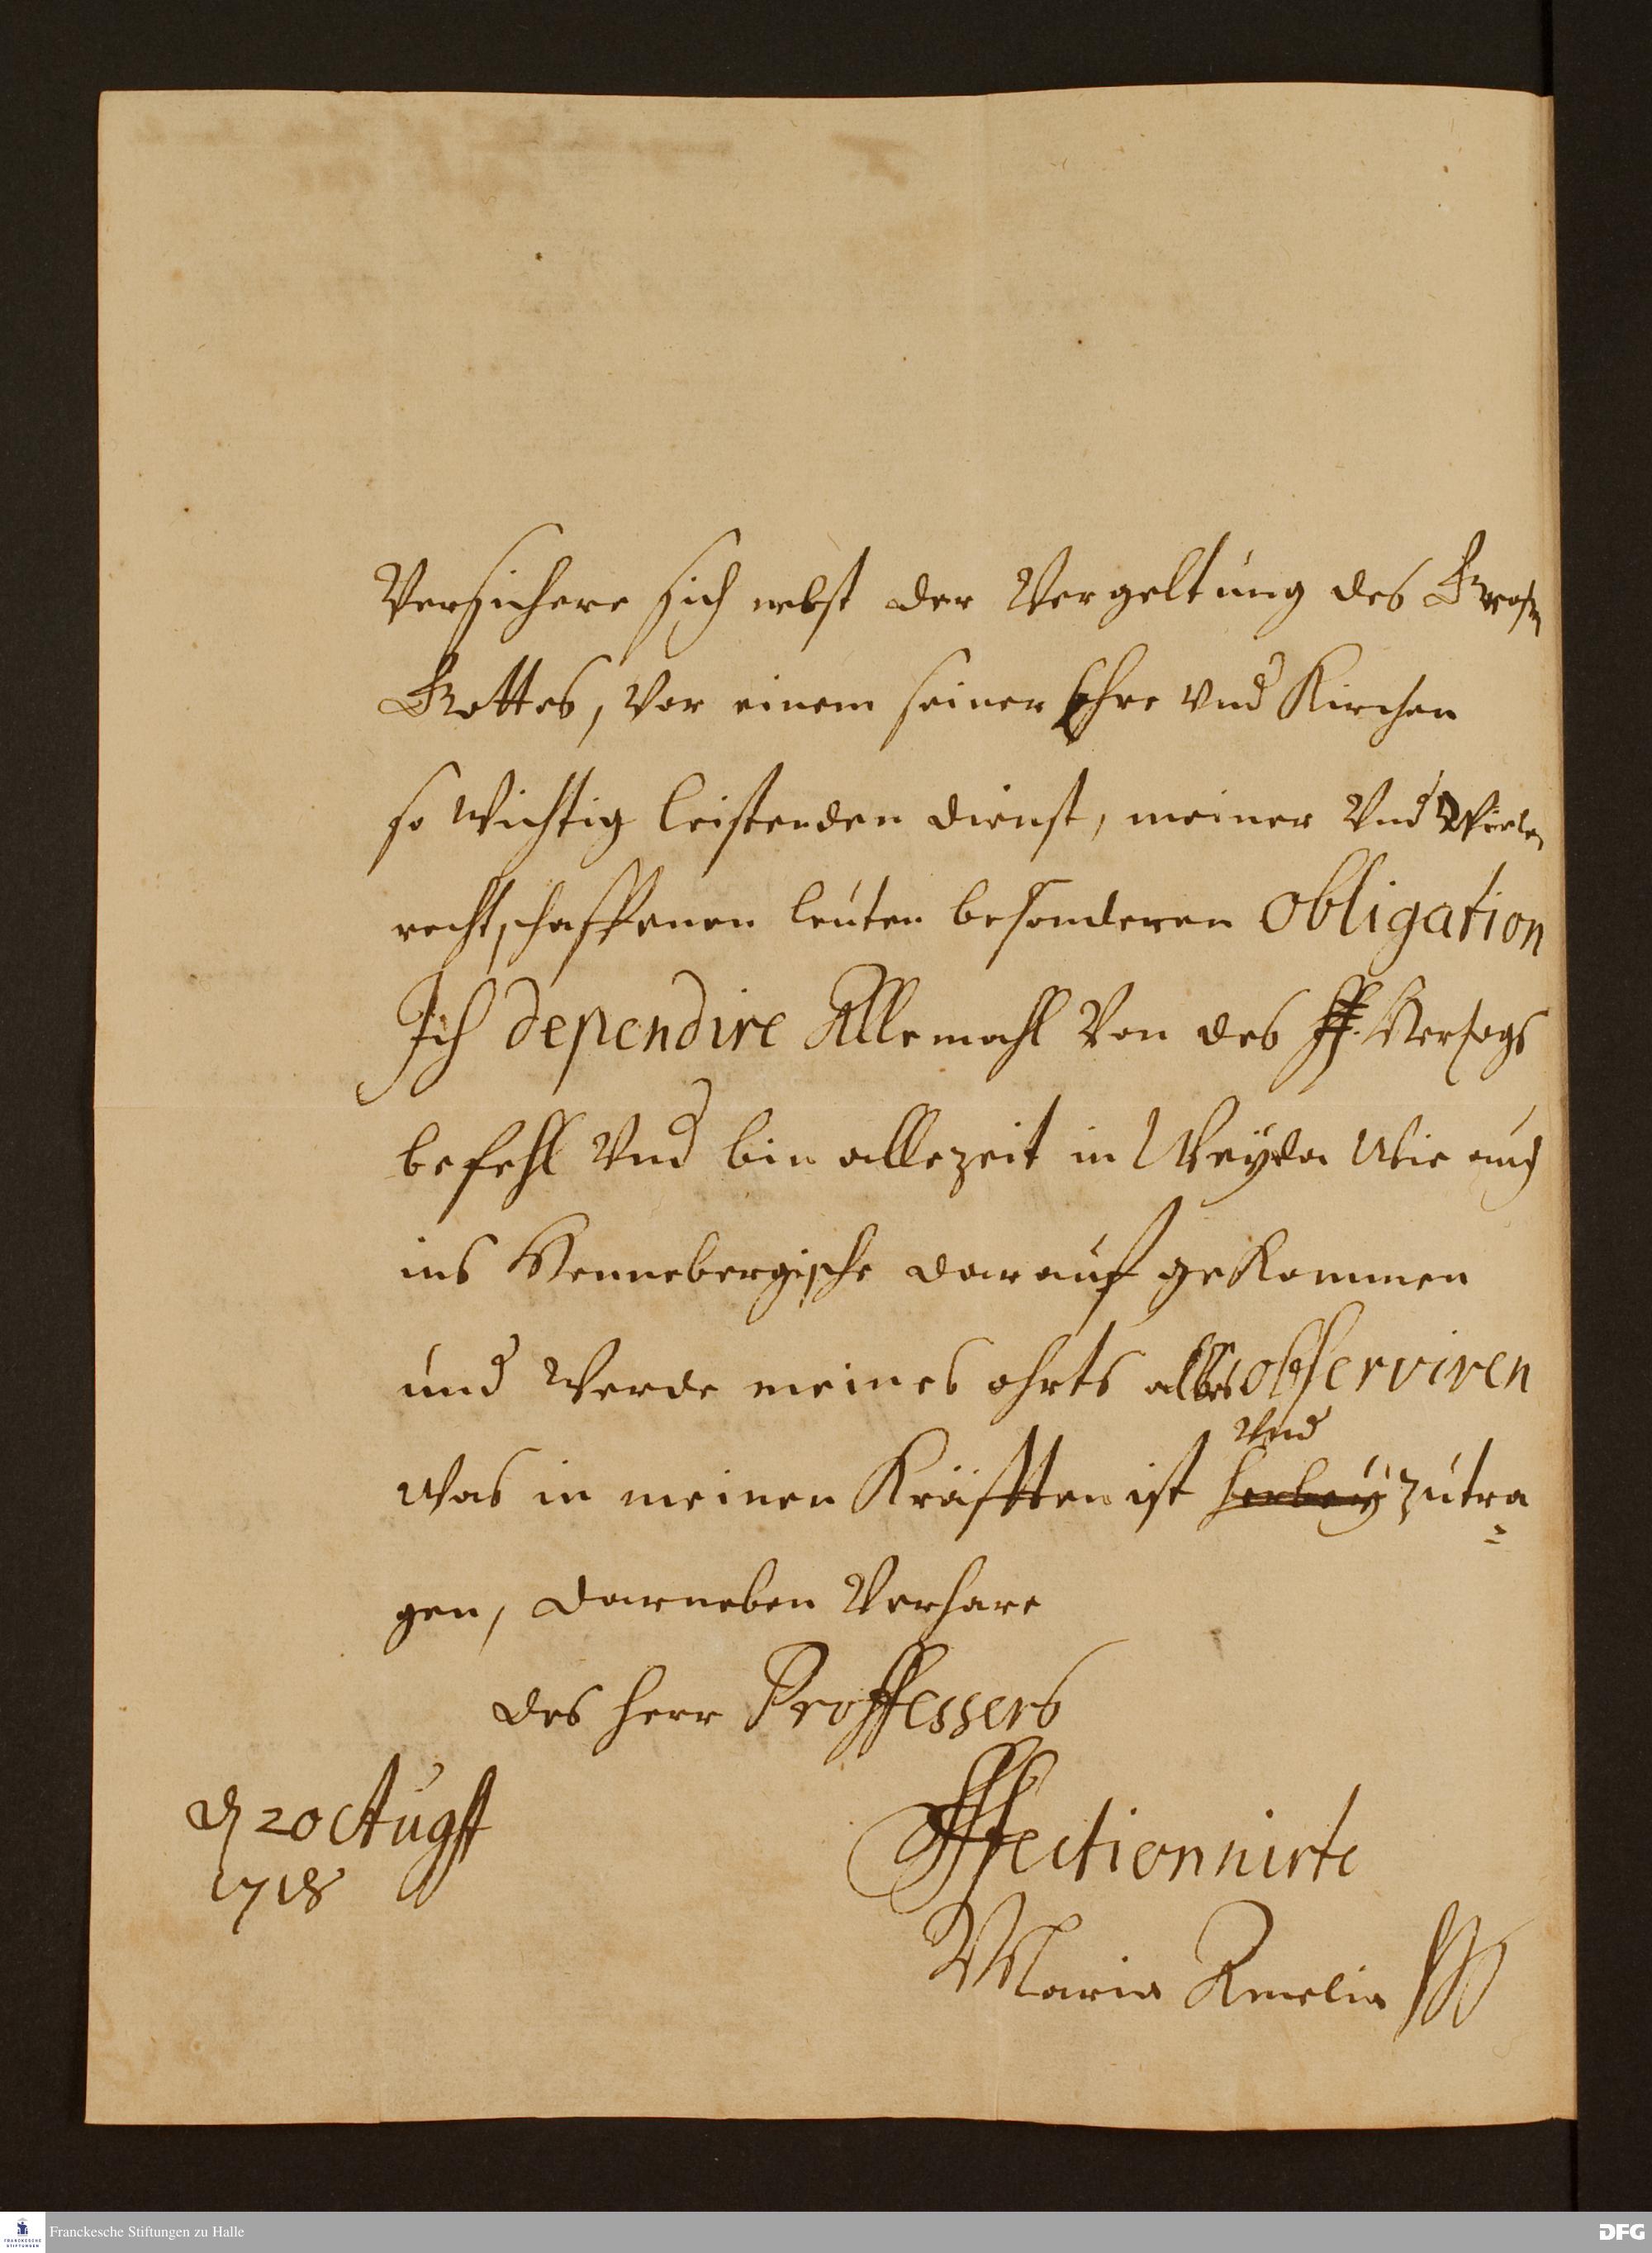 Versichere sich nebst der Vergeltung des Grosen
Gottes, vor einem seiner Ehre und Kirchen
so wichtig leistenden dienst, meiner Und Vielen
rechtschaffenen leuten besonderen Obligation
Ich dependire Allemahl Von des H. Hertzogs
befehl Und bin allezeit in Weyda Wie auch
ins Hennebergische darauf gekommen
und Werde meines ohrts alles observiren
Und
Was in meinen Kräfften ist herbey zutra
gen, darneben Verhare
des Herr Proffessers
d 20 Augst
1718
Affectionnirte
Maria Amelia
Franckesche Stiftungen zu Halle
FRANCKESCHE
STIFTUNGEN
DFG